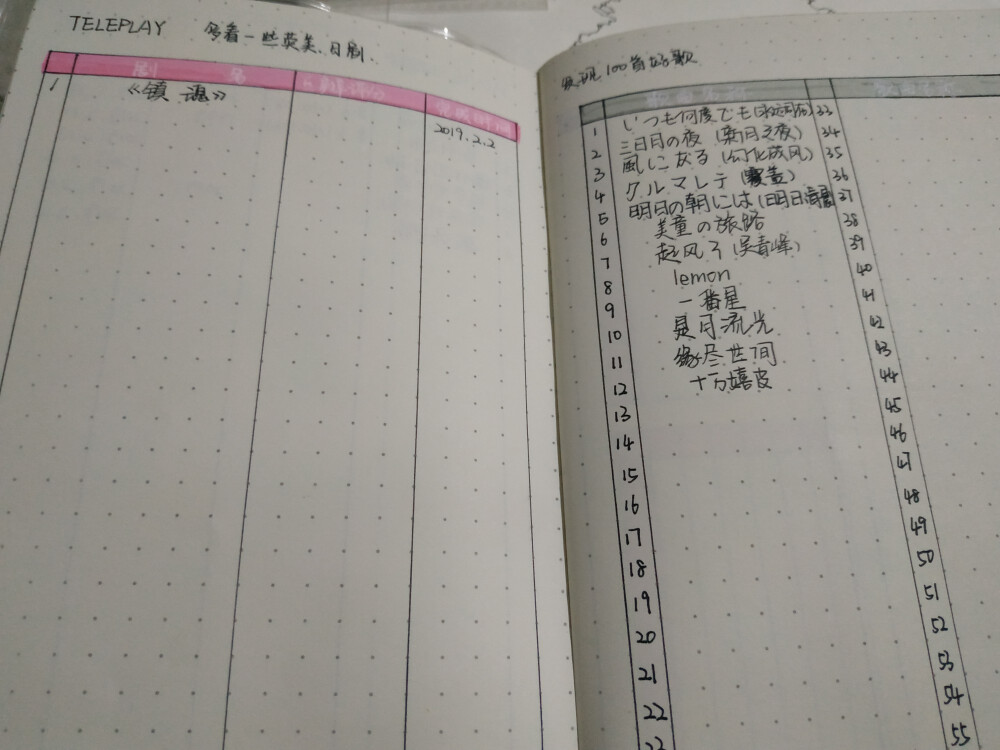 TELEPLAY 多看一些英美、日剧.
剧 名
完成时间
1 《镇魂》
2019.2.2
发现100首好歌
1 いつも何度でも
2 三日月の夜(新月之夜)
3 風になる(幻化成风)
4 クルマレテ
5 明日の朝には
6 美童の旅路
7 起风了(吴青峰)
8 lemon
9 一番星
10 是月流光
11 缘尽世间
12 十万嬉皮
13
14
15
16
17
18
19
20
21
22
23
33
34
35
36
37
38
39
40
41
42
43
44
45
46
47
48
49
50
51
52
53
54
55